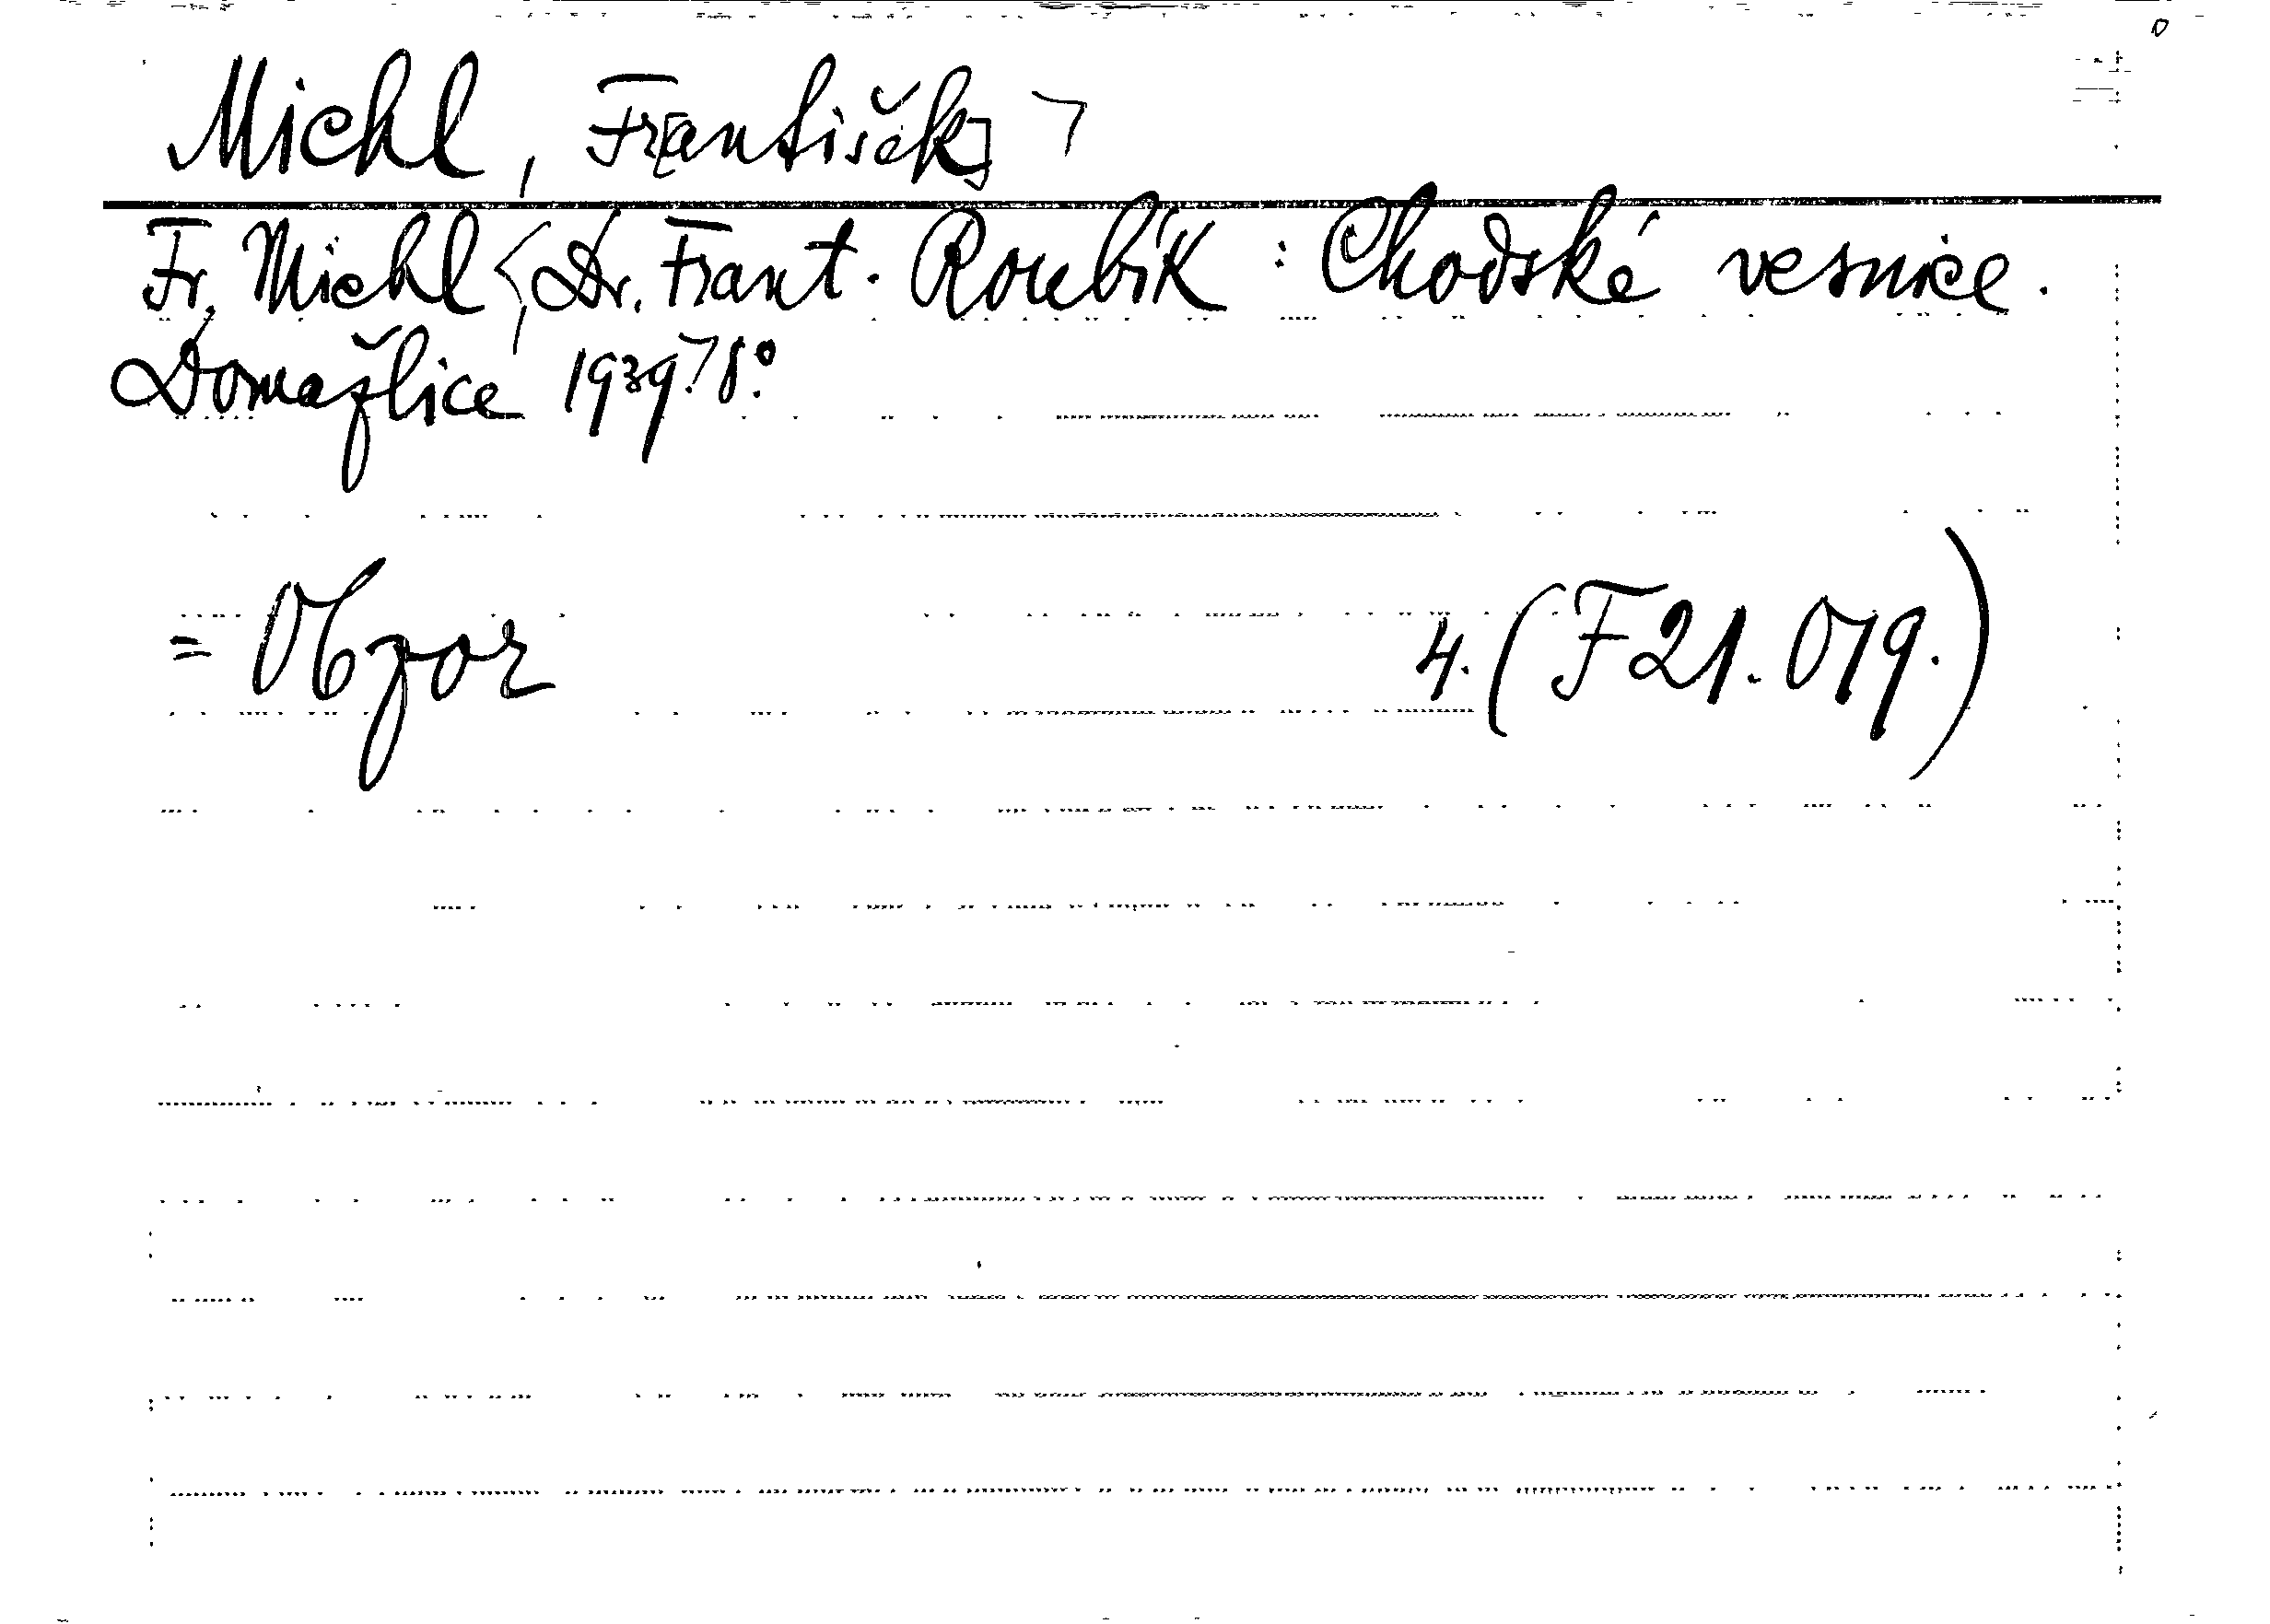 Michl, Fr[antišek]
Fr. Michl, Dr. Frant. Roubík : Chodské vesnice.
Domažlice 1939. 8°.
= Obzor 4. (F 21.079.)